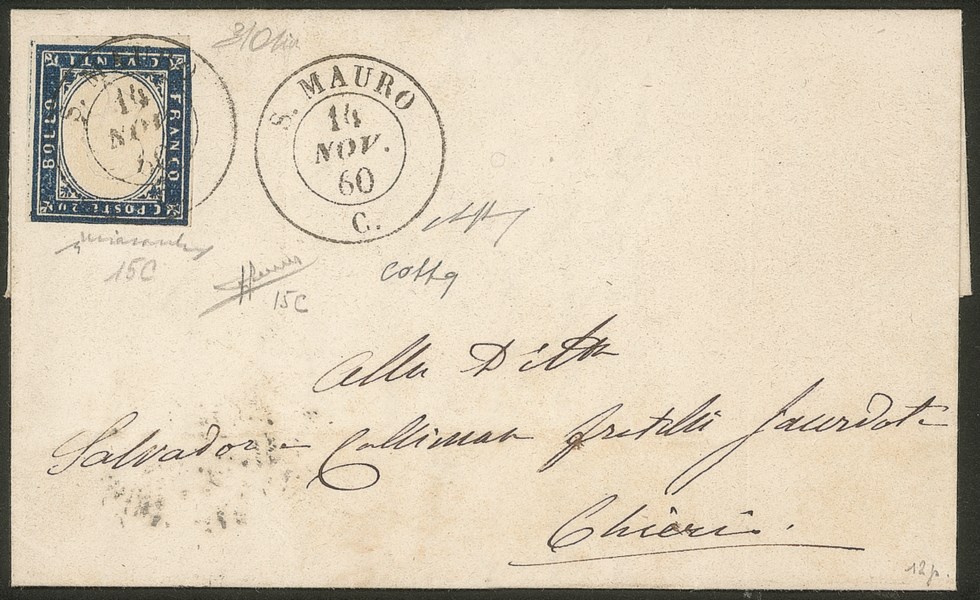 C. VENTI
FRANCO
C POSTE 20
BOLLO
14
NOV
60
S. MAURO
14
NOV.
60
C.
15C
15C
Cotta
Alla Ditta
Salvador Colliman fratelli Sacerdote
Chieri.
12p.